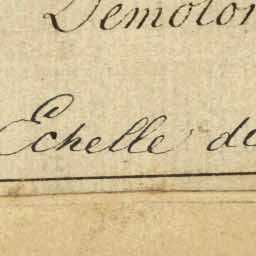 Demolon
Echelle de